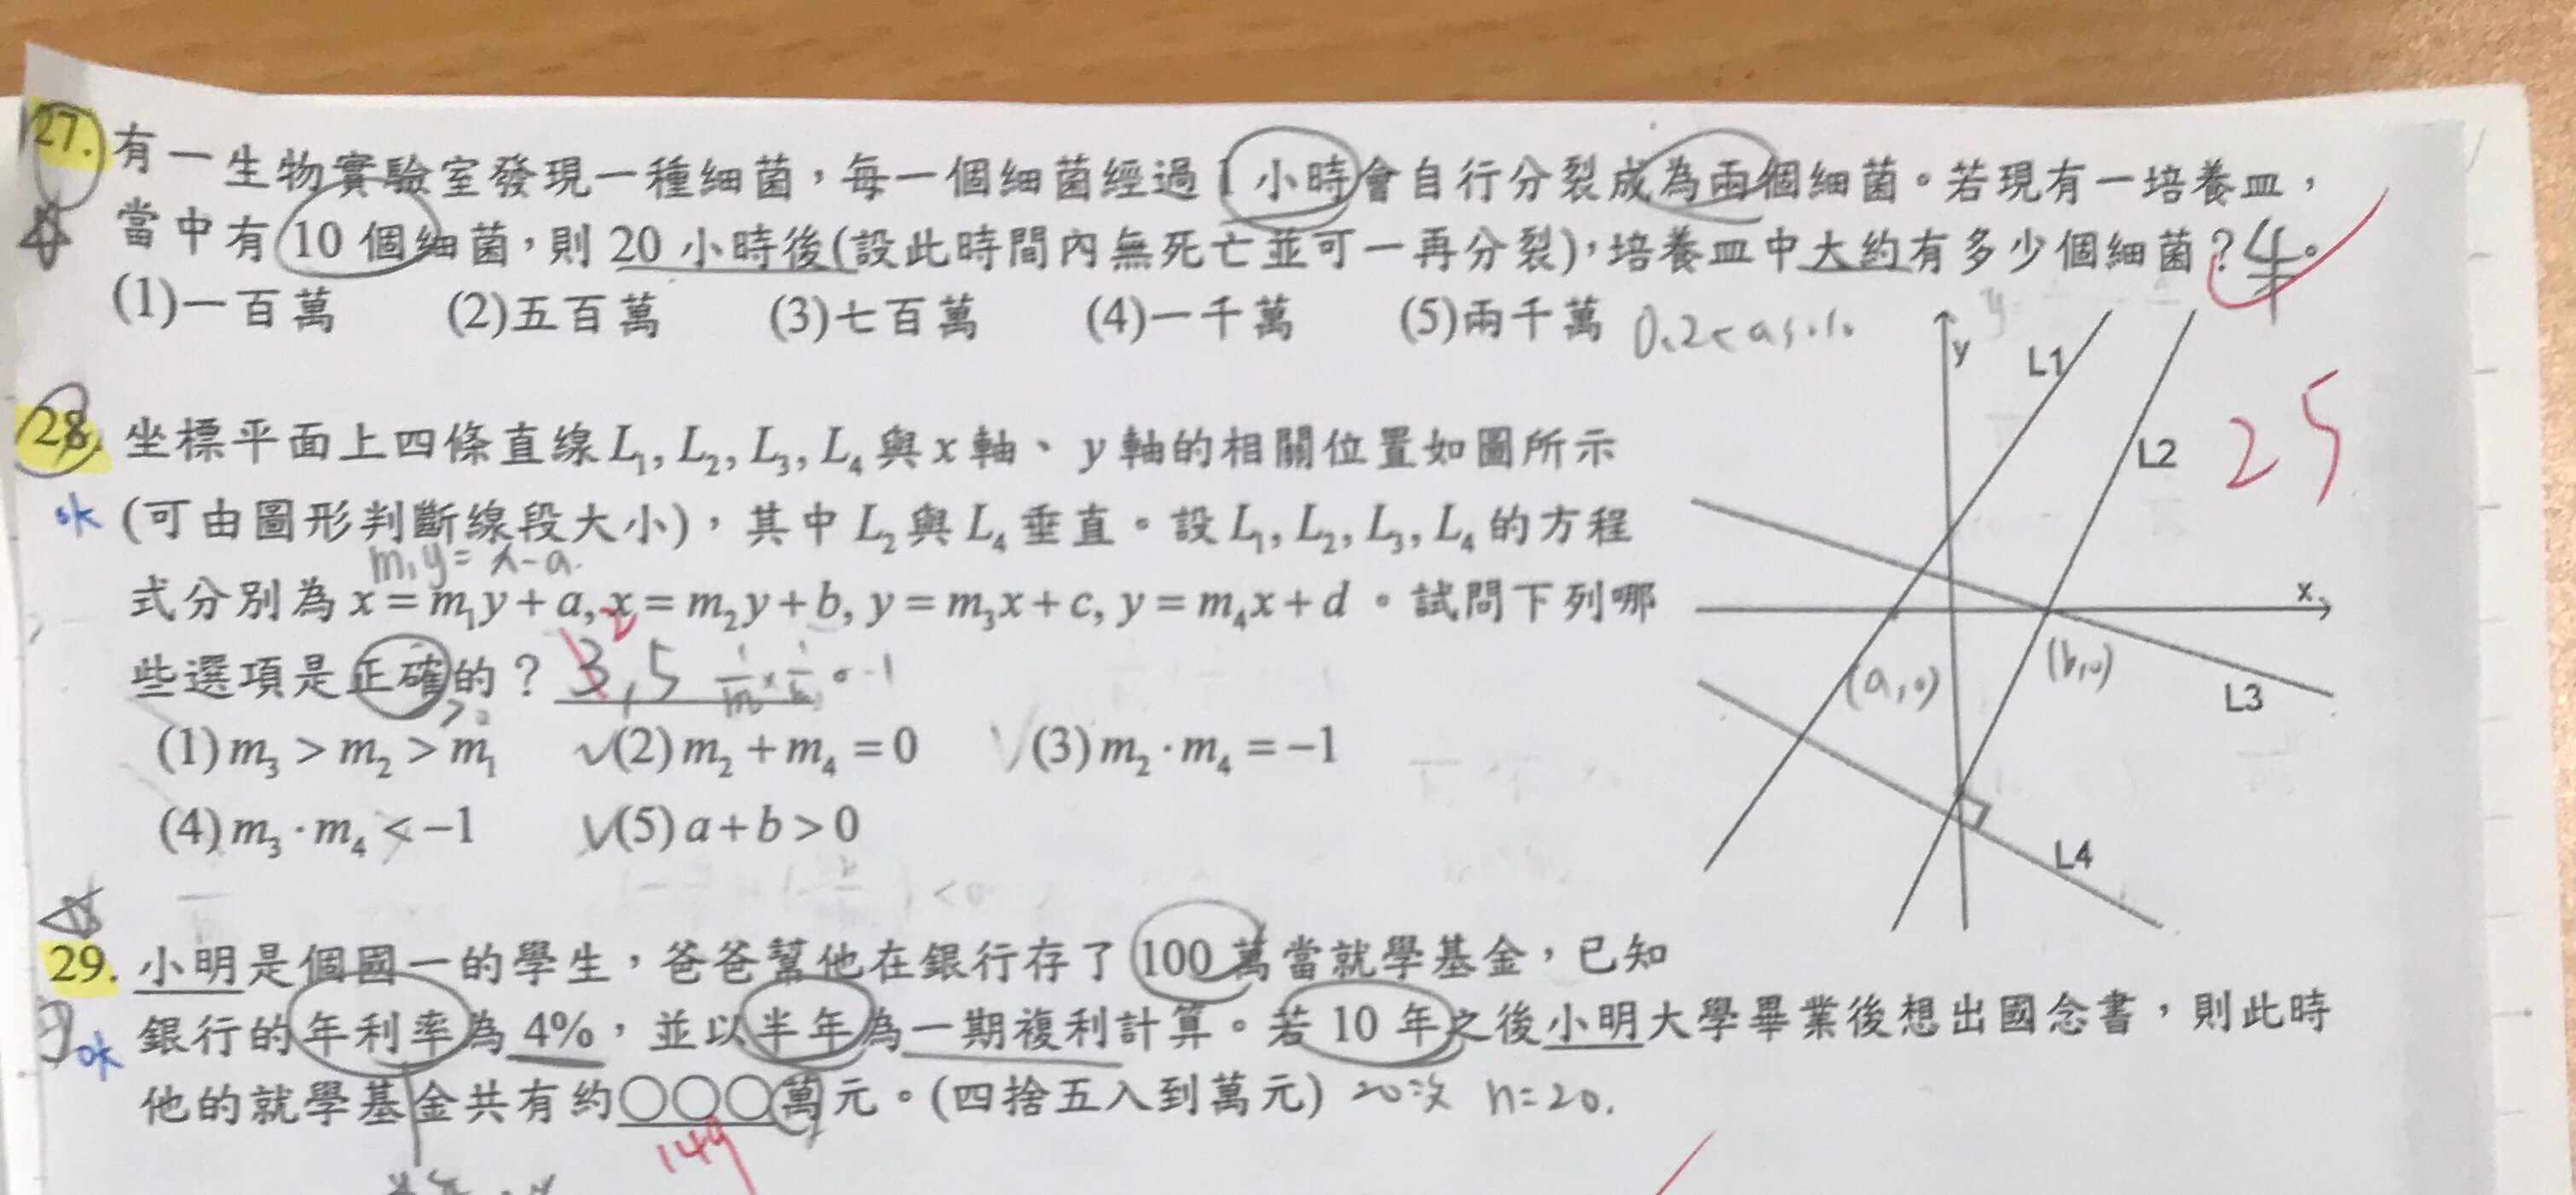 27. 有一生物實驗室發現一種細菌，每一個細菌經過 1 小時會自行分裂成為兩個細菌。若現有一培養皿，
當中有 10 個細菌，則 20 小時後(設此時間內無死亡並可一再分裂)，培養皿中大約有多少個細菌？4。
(1)一百萬 (2)五百萬 (3)七百萬 (4)一千萬 (5)兩千萬
28. 坐標平面上四條直線 L₁, L₂, L₃, L₄ 與 x 軸、 y 軸的相關位置如圖所示
ok (可由圖形判斷線段大小)，其中 L₂ 與 L₄ 垂直。設 L₁, L₂, L₃, L₄ 的方程
m₁y = x - a.
式分別為 x = m₁y + a, x = m₂y + b, y = m₃x + c, y = m₄x + d 。試問下列哪
些選項是正確的？ 3, 5
2
>0
(1) m₃ > m₂ > m₁ √(2) m₂ + m₄ = 0 √(3) m₂ · m₄ = −1
(4) m₃ · m₄ < −1 √(5) a + b > 0
y
L1
L2
25
x
(a,0)
(b,0)
L3
L4
29. 小明是個國一的學生，爸爸幫他在銀行存了 100 萬當就學基金，已知
ok 銀行的年利率為 4%，並以半年為一期複利計算。若 10 年之後小明大學畢業後想出國念書，則此時
他的就學基金共有約○○○萬元。(四捨五入到萬元) 20次 n=20.
149